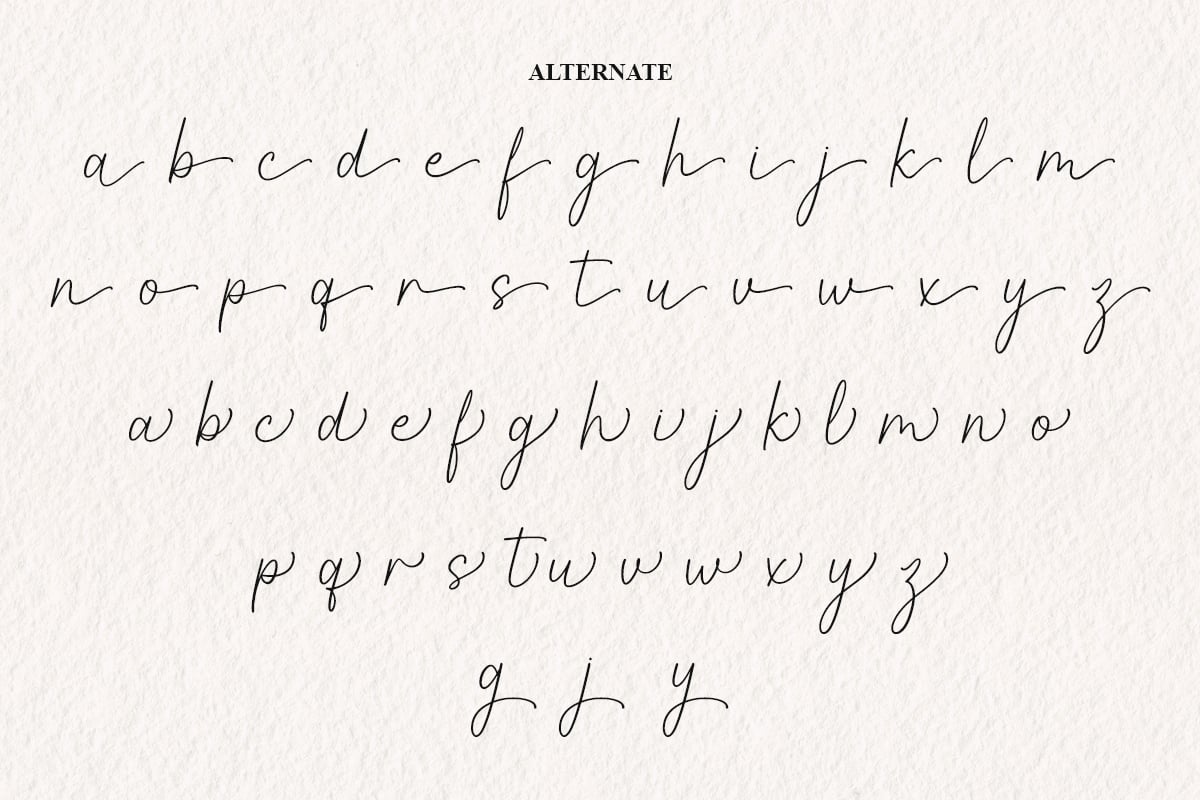 ALTERNATE
a b c d e f g h i j k l m
n o p q r s t u v w x y z
a b c d e f g h i j k l m n o
p q r s t u v w x y z
g j y